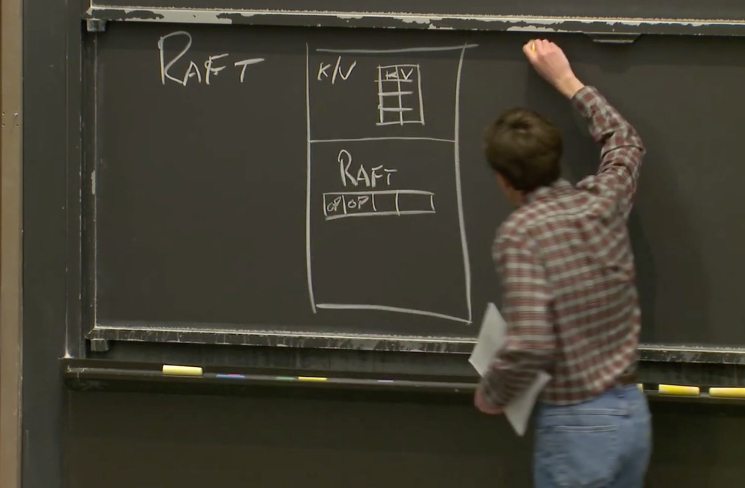 RAFT
K/V
K V
RAFT
OP OP